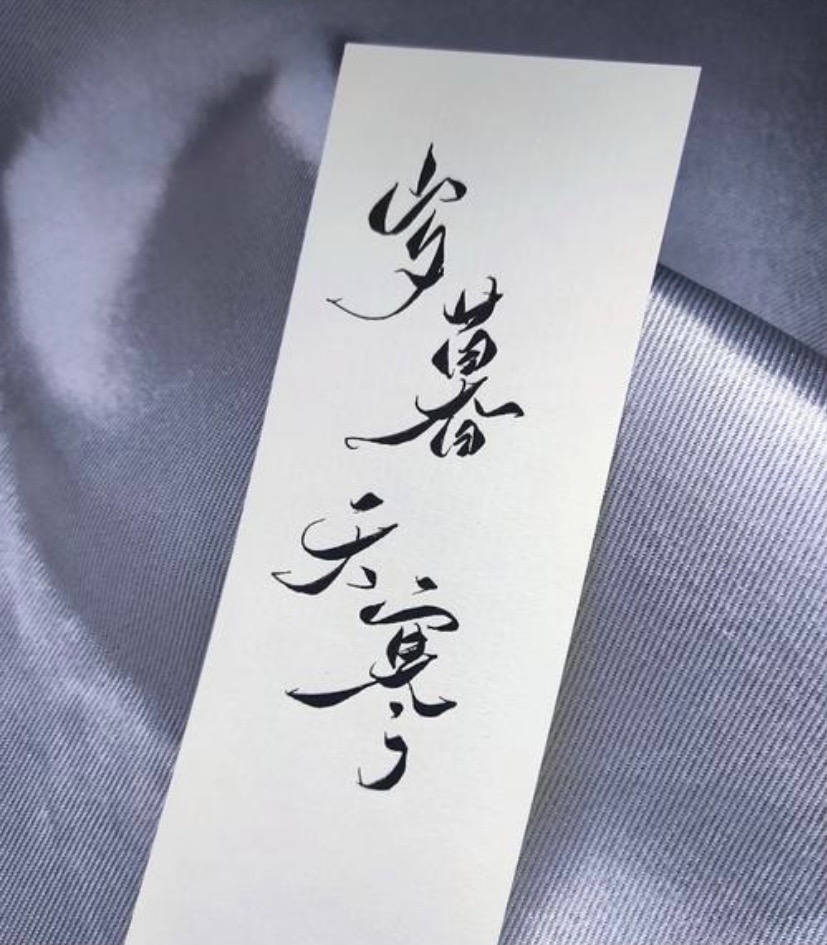 岁暮天寒